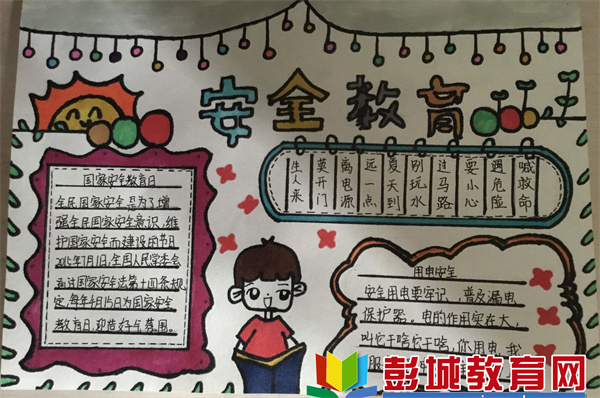 安全教育
国家安全教育日
全民国家安全是为了增
强全民国家安全意识,维
护国家安全而建设的节日
2015年7月1日,全国人民常委会
通过国家安全法第十四条规
定,每年4月15日为国家安全
教育日,迎造好与氛围。
生人来
莫开门
离电源
远一点
夏天到
别玩水
过马路
要小心
遇危险
喊救命
用电安全
安全用电要牢记,普及漏电
保护器。电的作用实在大,
叫它干啥它干啥,你用电,我
彭城教育网